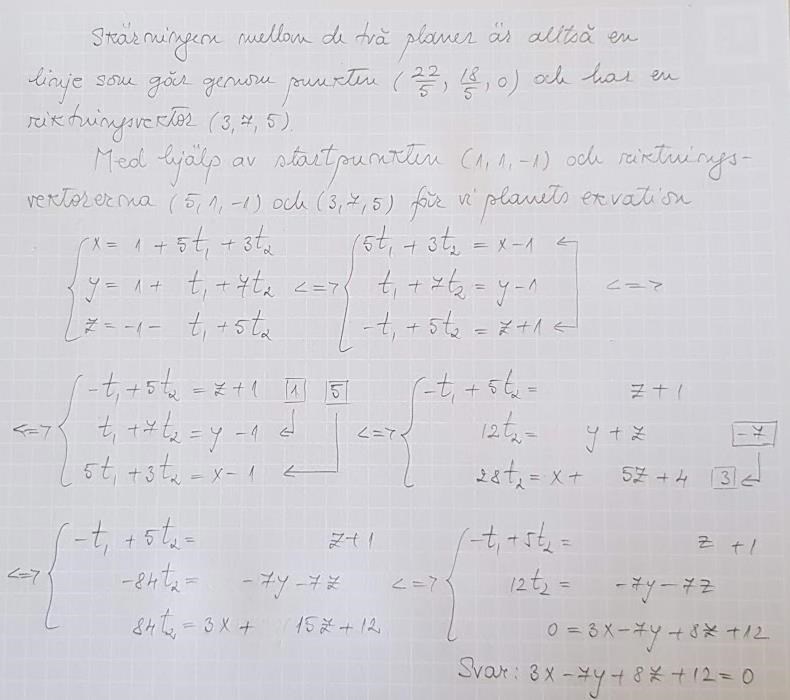 Skärningen mellan de två planen är alltså en
linje som går genom punkten (22/5, 18/5, 0) och har en
riktningsvektor (3, 7, 5).
Med hjälp av startpunkten (1, 1, -1) och riktnings-
vektorerna (5, 1, -1) och (3, 7, 5) får vi planets ekvation
{ x = 1 + 5t₁ + 3t₂ { 5t₁ + 3t₂ = x - 1 ←
{ y = 1 + t₁ + 7t₂ <=> { t₁ + 7t₂ = y - 1 <=>
{ z = -1 - t₁ + 5t₂ { -t₁ + 5t₂ = z + 1 ←
{ -t₁ + 5t₂ = z + 1 [1] [5] { -t₁ + 5t₂ = z + 1
<=> { t₁ + 7t₂ = y - 1 ← <=> { 12t₂ = y + z [-7]
{ 5t₁ + 3t₂ = x - 1 ← { 28t₂ = x + 5z + 4 [3] ←
{ -t₁ + 5t₂ = z + 1 { -t₁ + 5t₂ = z + 1
<=> { -84t₂ = -7y - 7z <=> { 12t₂ = -7y - 7z
{ 84t₂ = 3x + 15z + 12 { 0 = 3x - 7y + 8z + 12
Svar: 3x - 7y + 8z + 12 = 0